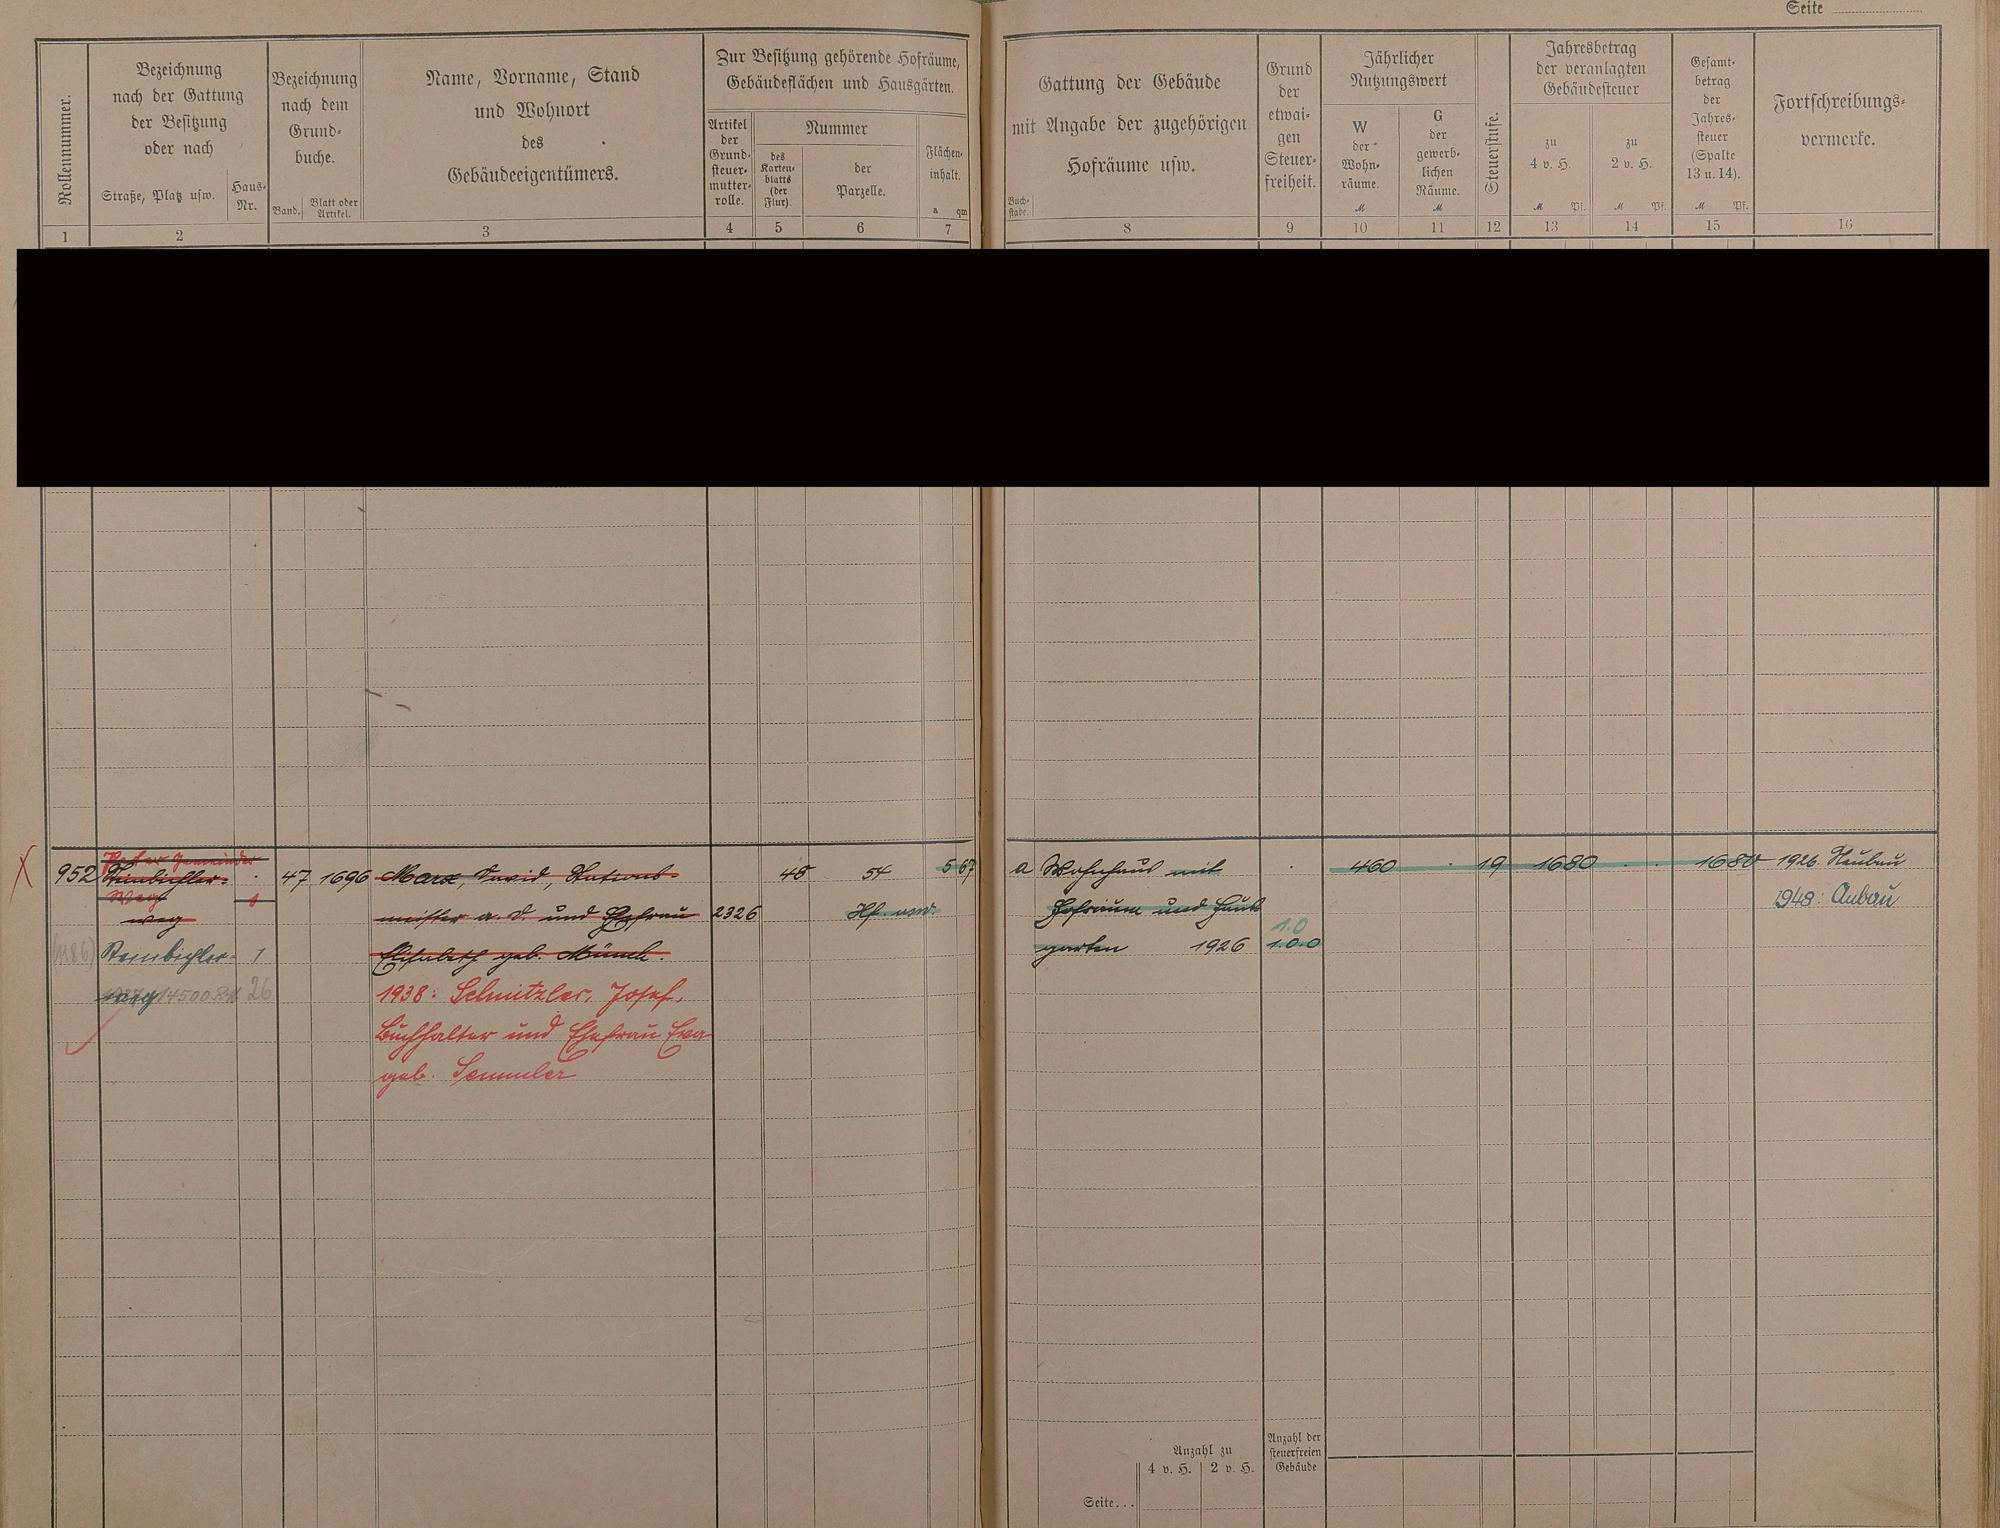 Seite
Rollennummer.
Bezeichnung
nach der Gattung
der Besitzung
oder nach
Straße, Platz usw.
Haus-
Nr.
Bezeichnung
nach dem
Grund-
buche.
Band.
Blatt oder
Artikel.
Name, Vorname, Stand
und Wohnort
des
Gebäudeeigentümers.
Zur Besitzung gehörende Hofräume,
Gebäudeflächen und Hausgärten.
Artikel
der
Grund-
steuer-
mutter-
rolle.
Nummer
des
Karten-
blatts
(der
Flur).
der
Parzelle.
Flächen-
inhalt.
a qm
Buch-
stabe.
Gattung der Gebäude
mit Angabe der zugehörigen
Hofräume usw.
Grund
der
etwai-
gen
Steuer-
freiheit.
Jährlicher
Nutzungswert
W
der
Wohn-
räume.
M
G
der
gewerb-
lichen
Räume.
M
Steuerstufe.
Jahresbetrag
der veranlagten
Gebäudesteuer
zu
4 v. H.
M Pf.
zu
2 v. H.
M Pf.
Gesamt-
betrag
der
Jahres-
steuer
(Spalte
13 u. 14).
M Pf.
Fortschreibungs-
vermerke.
1 2 3 4 5 6 7 8 9 10 11 12 13 14 15 16
952 47 1696 Marx, David, Stations- 45 54 5 67 a Wohnhaus mit 460 19 1680 1680 1926 Neubau
weg meister a. D. und Ehefrau 2326 Hf. usw. Hofraum und Haus 1948: Anbau
1 Elisabeth geb. Münch. garten 1926 1.0.0
1.0
weg 14500 RM 26 1938: Schnitzler, Josef,
Buchhalter und Ehefrau Eva
geb. Semmler
Anzahl zu
4 v. H. 2 v. H.
Anzahl der
steuerfreien
Gebäude
Seite...